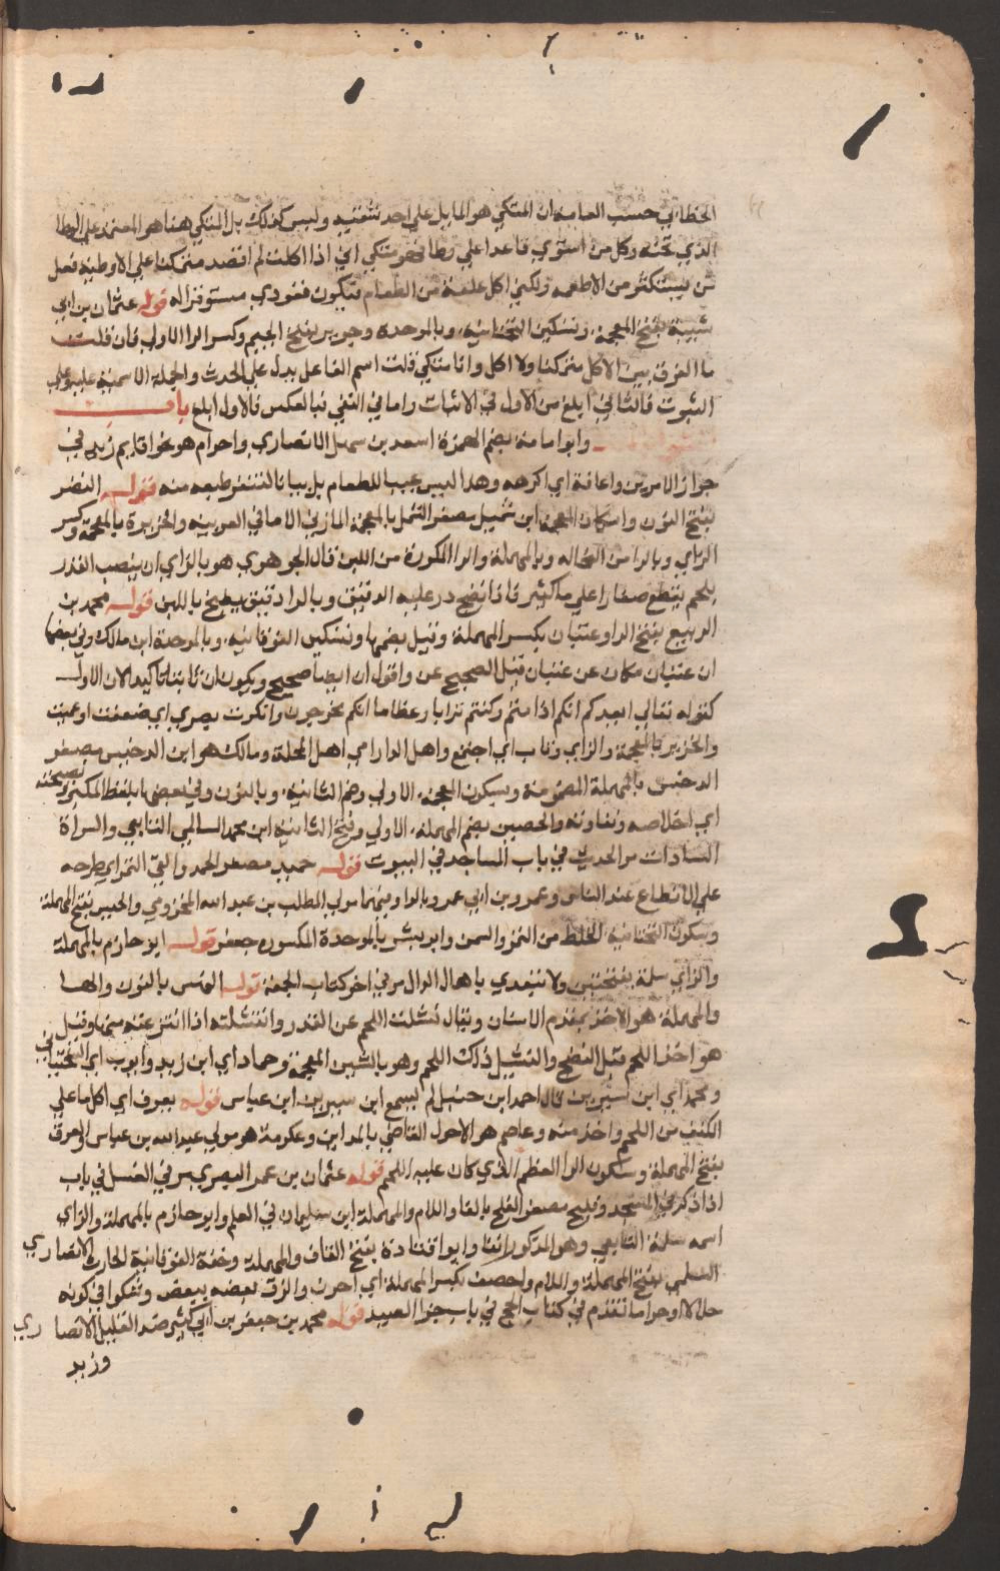 الخطابي حسب العامة ان المتكي هو المايل علي احد شقيه وليس كذلك بل المتكي هنا هو المعتمد علي الوطا
الذي تحته وكل من استوي قاعدا علي وطا فهو متكي اي اذا اكلت لم اقعد متمكنا علي الاوطية فعل
من يستكثر من الاطعمه ولكني اكل علقة من الطعام فيكون قعودي مستوفزا له قوله عثمان بن ابي
شيبة بفتح المعجمه وتسكين التحتانيه وبالموحده وجرير بفتح الجيم وكسر الرا الاولي فان قلت
ما الفرق بين الاكل متمكنا ولا اكل وانا متكي قلت اسم الفاعل يدل علي الحدث والجملة الاسميه عليه وعلي
الثبوت فالثاني ابلغ من الاول في الاثبات واما في النفي فبالعكس فالاول ابلغ باب
وابو امامة بضم الهمزة اسعد بن سهل الانصاري واحرام هو نحو اقايم زيد في
جواز الامرين واعافه اي اكرهه وهذا ليس عيبا للطعام بل بيانا لتنفر طبعه منه قوله النضر
بفتح النون واسكان المعجمه ابن شميل مصغر الشمل بالمعجمة المازني الامام في العربيه والخزيرة بالمعجمة وكسر
الزاي وبالرا من النخاله وبالمهملة والرا المكررة من اللبن قال الجوهري هو بالزاي ان ينصب القدر
بلحم يقطع صغارا علي ما كثير فاذا نضج در عليه الدقيق وبالرا دقيق يطبخ باللبن قوله محمد بن
الربيع بفتح الرا وعتبان بكسر المهملة وقيل بضمها وتسكين الفوقانيه وبالموحدة ابن مالك وفي بعضها
ان عتبان مكان عن عتبان قيل الصحيح عن واقول ان ايضا صحيح ويكون ان ثانيا تاكيدا لان الاولي
كقوله تعالي ايعدكم انكم اذا متم وكنتم ترابا وعظاما انكم مخرجون وانكرت بصري اي ضعفت او عميت
والخزير بالمعجمة والزاي وثاب اي اجتمع واهل الدار اي اهل المحلة ومالك هو ابن الدخيس مصغر
الدخشن بالمهملة المضمومة وسكون المعجمه الاولي وضم الثانيه وبالنون وفي بعضها بلفظ المكبر ونصيحته
اي اخلاصه ونقاوته والحصين بضم المهملة الاولي وفتح الثانيه ابن محمد السالمي التابعي والسراة
السادات مر الحديث في باب المساجد في البيوت قوله حميد مصغر الحمد والقي التمر اي طرحه
علي الانطاع عند الناس وعمرو بن ابي عمرو بالواو فيهما مولي المطلب بن عبد الله المخزومي والحيس بفتح المهملة
وسكون التحتانيه الخلط من التمر والسمن وابو بشر بالموحدة المكسوره جعفر قوله ابو حازم بالمهملة
والزاي سلمة بفتحتين ولا نتغدي باهمال الدال مر في اخر كتاب الجمعة قوله النهس بالنون والها
والمهملة هو الاخذ بمقدم الاسنان ويقال نشلت اللحم عن القدر وانتشلته اذا انتزعته منها وقيل
هو اخذ اللحم قبل النضج والنشيل ذلك اللحم وهو بالشين المعجمة وحماد اي ابن زيد وايوب اي السختياني
ومحمد اي ابن سيرين قال احمد ابن حنبل لم يسمع ابن سيرين ابن عباس قوله يعرف اي اكل ما علي
الكتف من اللحم واخذ منه وعاصم هو الاحول القاضي بالمداين وعكرمة هو مولي عبد الله بن عباس والعرق
بفتح المهملة وسكون الرا العظم الذي كان عليه اللحم قوله عثمان بن عمر البصري مر في الغسل في باب
اذا ذكر في المسجد وفليح مصغر الفلح بالفا واللام والمهملة ابن سليمان في العلم وابو حازم بالمهملة والزاي
اسمه سلمة التابعي وهو المذكور انفا وابو قتادة بفتح القاف والمهملة وخفة الفوقانية الحارث الانصاري
السلمي بفتح المهملة واللام واخصف بكسر المهملة اي اخرز والزق بعضه ببعض وشكوا في كونه
حلالا او حراما تقدم في كتاب الحج في باب جزا الصيد قوله محمد بن جعفر بن ابي كثير ضد القليل الانصاري
وزيد